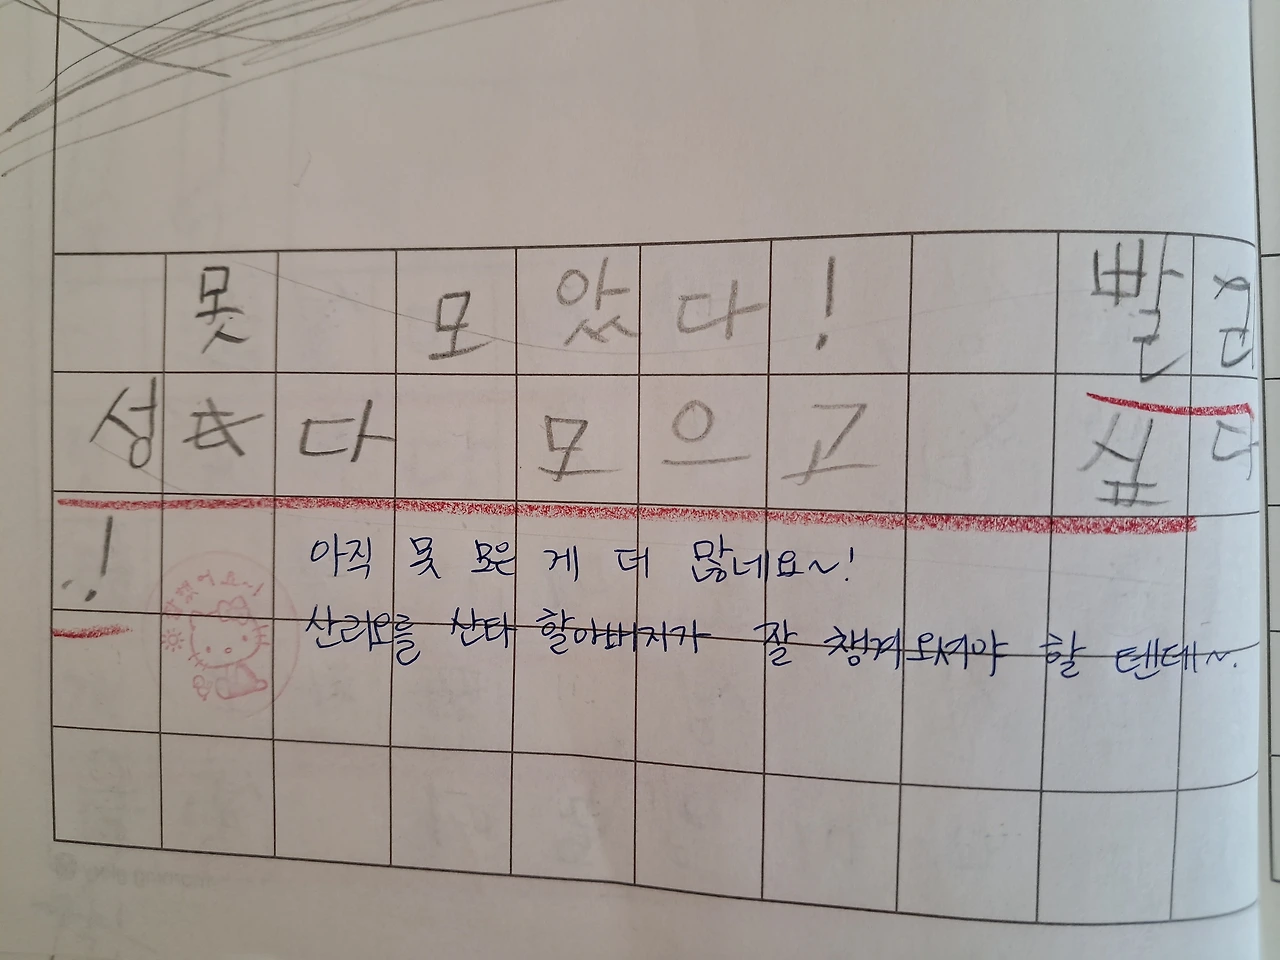 못 모았다!
성 다 모으고 싶다
.!
아직 못 모은 게 더 많네요~!
산리오를 산타 할아버지가 잘 챙겨오셔야 할 텐데~.